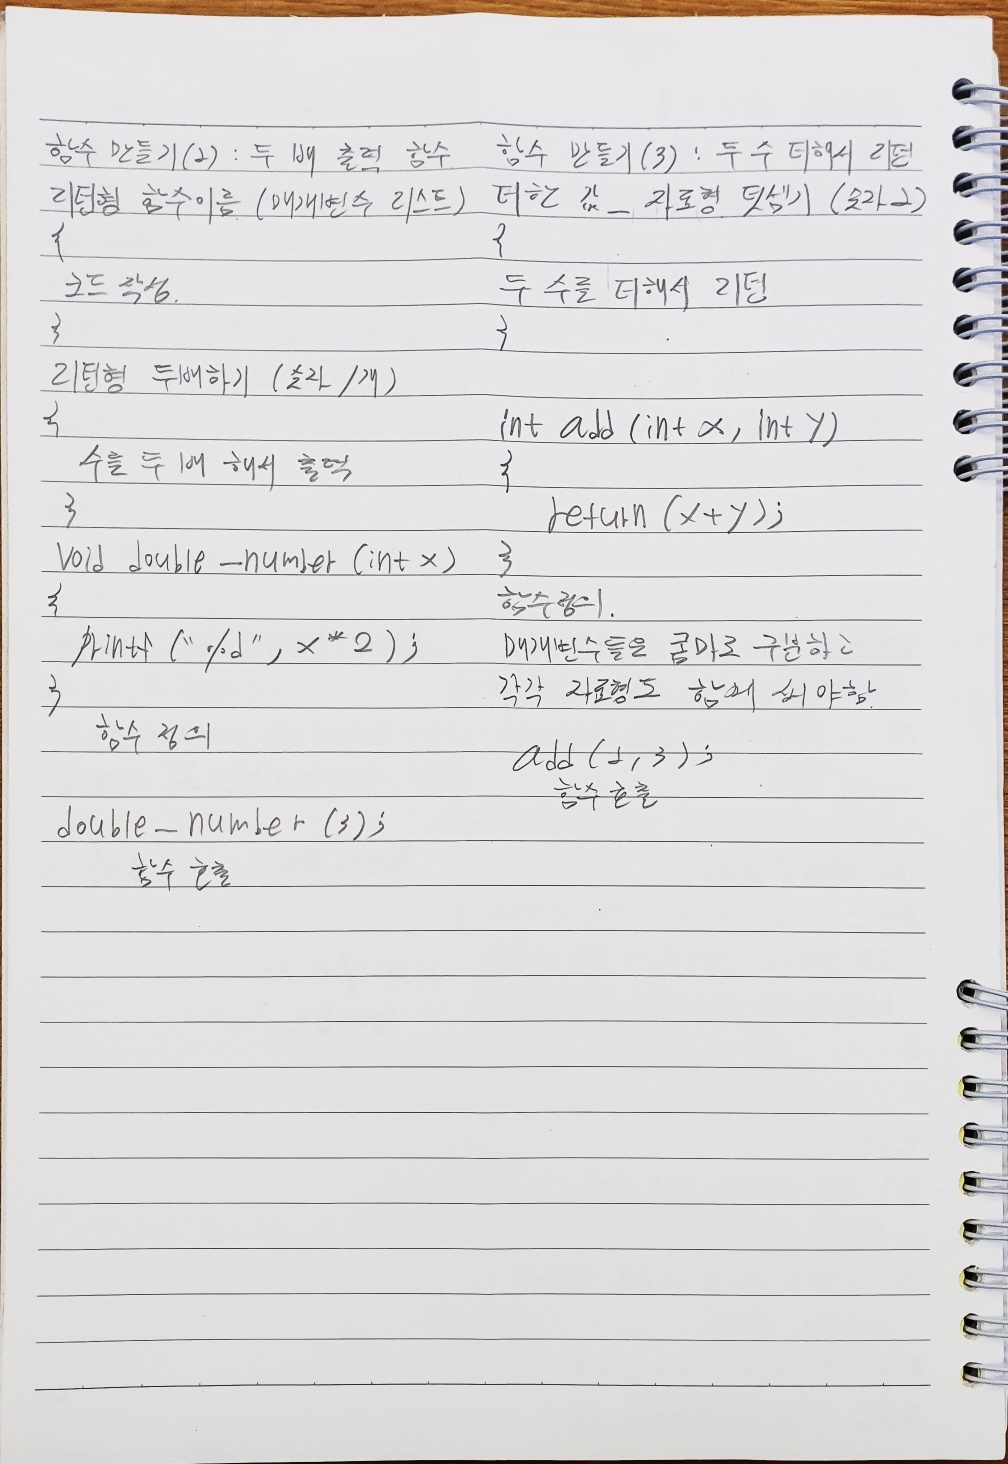 함수 만들기(2) : 두 배 출력 함수
리턴형 함수이름 (매개변수 리스트)
{
코드 작성.
}
리턴형 두배하기 (숫자 1개)
{
수를 두 배 해서 출력
}
void double_number (int x)
{
printf ("%d", x*2);
}
함수 정의
double_number (3);
함수 호출
함수 만들기(3) : 두 수 더해서 리턴
더한 값_ 자료형 덧셈기 (숫자2)
{
두 수를 더해서 리턴
}
int add (int x, int y)
{
return (x+y);
}
함수정의.
매개변수들은 콤마로 구분하고
각각 자료형도 함께 써야함.
add (2, 3);
함수 호출